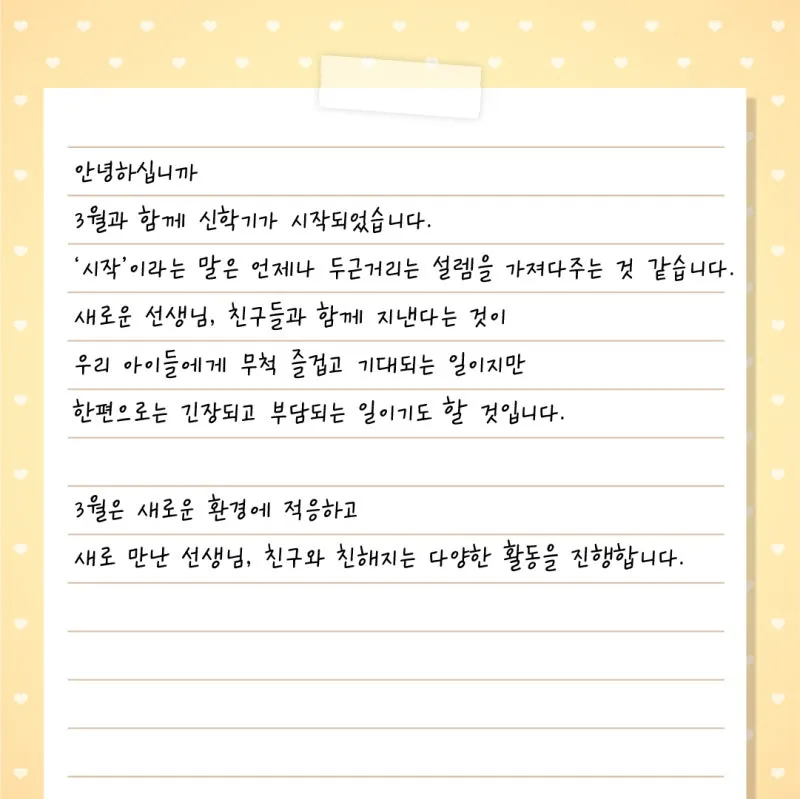 안녕하십니까
3월과 함께 신학기가 시작되었습니다.
‘시작’이라는 말은 언제나 두근거리는 설렘을 가져다주는 것 같습니다.
새로운 선생님, 친구들과 함께 지낸다는 것이
우리 아이들에게 무척 즐겁고 기대되는 일이지만
한편으로는 긴장되고 부담되는 일이기도 할 것입니다.
3월은 새로운 환경에 적응하고
새로 만난 선생님, 친구와 친해지는 다양한 활동을 진행합니다.